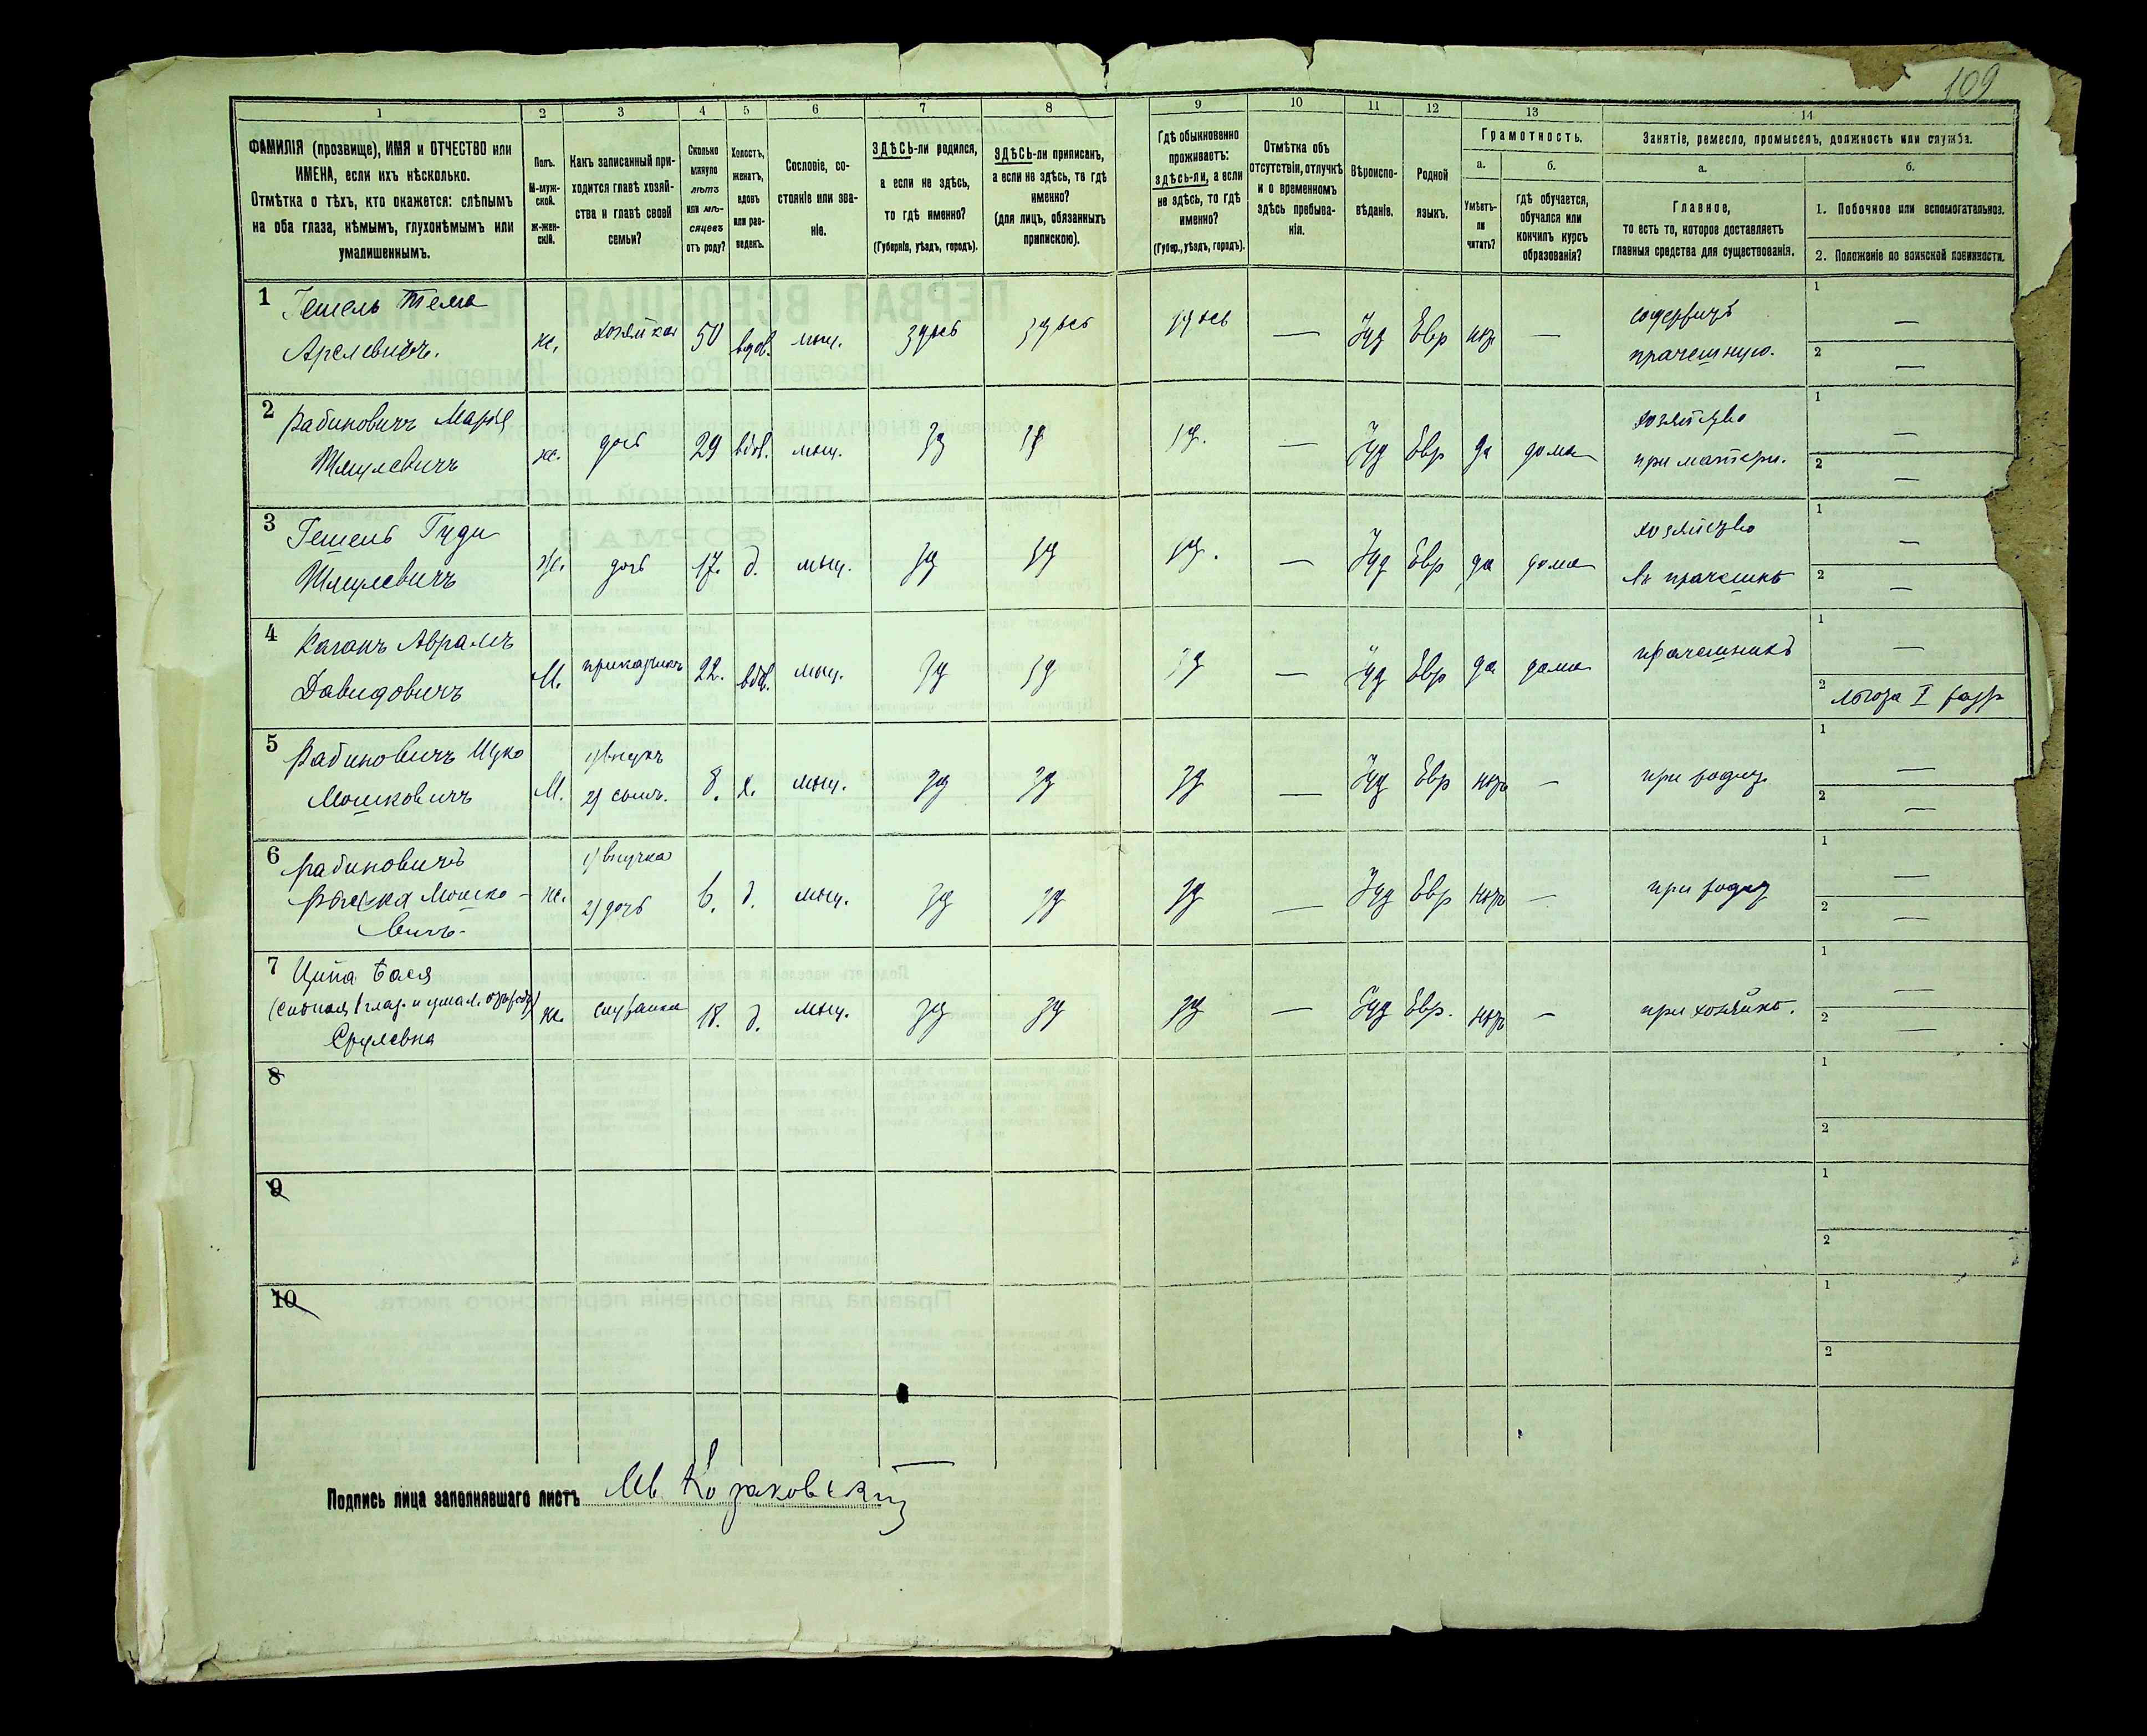 109
1 2 3 4 5 6 7 8 9 10 11 12 13 14
ФАМИЛІЯ (прозвище), ИМЯ и ОТЧЕСТВО или
ИМЕНА, если ихъ нѣсколько.
Отмѣтка о тѣхъ, кто окажется: слѣпымъ
на оба глаза, нѣмымъ, глухонѣмымъ или
умалишеннымъ.
Полъ.
М-муж-
ской.
ж-жен-
скій.
Какъ записанный при-
ходится главѣ хозяй-
ства и главѣ своей
семьи?
Сколько
минуло
лѣтъ
или мѣ-
сяцевъ
отъ роду?
Холостъ,
женатъ,
вдовъ
или раз-
веденъ.
Сословіе, со-
стояніе или зва-
ніе.
ЗДѢСЬ-ли родился,
а если не здѣсь,
то гдѣ именно?
(Губернія, уѣздъ, городъ).
ЗДѢСЬ-ли приписанъ,
а если не здѣсь, то гдѣ
именно?
(для лицъ, обязанныхъ
припискою).
Гдѣ обыкновенно
проживаетъ:
здѣсь-ли, а если
не здѣсь, то гдѣ
именно?
(Губер., уѣздъ, городъ).
Отмѣтка объ
отсутствіи, отлучкѣ
и о временномъ
здѣсь пребыва-
ніи.
Вѣроиспо-
вѣданіе.
Родной
языкъ.
Грамотность.
а.
Умѣетъ-
ли
читать?
б.
гдѣ обучается,
обучался или
кончилъ курсъ
образованія?
Занятіе, ремесло, промыселъ, должность или служба.
а.
Главное,
то есть то, которое доставляетъ
главныя средства для существованія.
б.
1. Побочное или вспомогательное.
2. Положеніе по воинской повинности.
1 Гешель Тема
Арелевичъ.
ж. хозяйка 50 вдов. мѣщ. здѣсь здѣсь здѣсь — Іуд Евр нѣт —
содержитъ
прачешную.
1 —
2 —
2 Рабиновичъ Марія
Шмулевичъ
ж. дочь 29 вдов. мѣщ. зд зд зд. — Іуд Евр да дома
хозяйство
при матери.
1 —
2 —
3 Гешель Гуди
Шмулевичъ
Ж. дочь 17. д. мѣщ. зд зд зд. — Іуд Евр да дома
хозяйство
въ прачешнѣ
1 —
2 —
4 Каганъ Аврамъ
Давидовичъ
М. приказчикъ 22. вдов. мѣщ. зд зд зд — Іуд Евр да дома
прачешникъ
1 —
2 льгота I разр
5 Рабиновичъ Ицко
Мошковичъ
М. 1) внукъ
2) сынъ. 8. х. мѣщ. зд зд зд — Іуд Евр нѣтъ —
при родит.
1 —
2 —
6 Рабиновичъ
Рыска Мошко-
вичъ
ж. 1) внучка
2) дочь 6. д. мѣщ. зд зд зд — Іуд Евр нѣтъ —
при родит
1 —
2 —
7 Ципа Бася
Срулевна
ж. служанка 18. д. мѣщ. зд зд зд — Іуд Евр. нѣтъ —
при хозяйкѣ.
1 —
2 —
8
1
2
9
1
2
10
1
2
Подпись лица заполнявшаго листъ